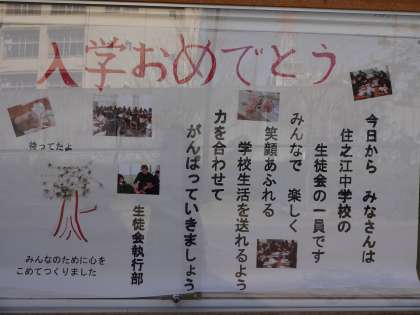 入学おめでとう
今日から みなさんは
住之江中学校の
生徒会の一員です
みんなで 楽しく
笑顔あふれる
学校生活を送れるよう
力を合わせて
がんばっていきましょう
生徒会執行部
待ってたよ
みんなのために心を
こめてつくりました